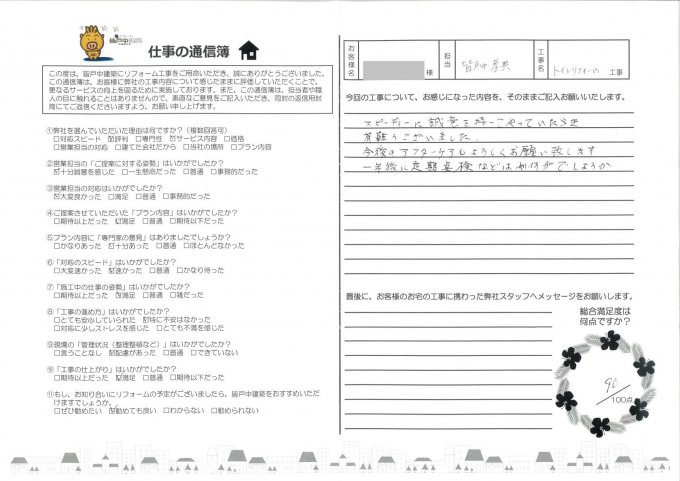 皆戸中建築
仕事の通信簿
この度は、皆戸中建築にリフォーム工事をご用命いただき、誠にありがとうございました。
この通信簿は、お客様に弊社の工事内容について感じたままに評価していただくことで、
更なるサービスの向上を図るために実施しております。また、この通信簿は、担当者や職
人の目に触れることはありませんので、率直なご意見をご記入いただき、同封の返信用封
筒にてご返信くださいますよう、お願い申し上げます。
①弊社を選んでいただいた理由は何ですか?(複数回答可)
□対応スピード ☑評判 □専門性 ☑サービス内容 □価格
□営業担当の対応 □建てた会社だから □当社の場所 □プラン内容
②営業担当の「ご提案に対する姿勢」はいかがでしたか?
☑十分誠意を感じた □一生懸命だった □普通 □事務的だった
③営業担当の対応はいかがでしたか?
☑大変良かった □満足 □普通 □事務的だった
④ご提案させていただいた「プラン内容」はいかがでしたか?
□期待以上だった ☑満足 □普通 □期待以下だった
⑤プラン内容に「専門家の意見」はありましたでしょうか?
□かなりあった ☑十分あった □普通 □ほとんどなかった
⑥「対応のスピード」はいかがでしたか?
□大変速かった ☑速かった □普通 □かなり待った
⑦「施工中の仕事の姿勢」はいかがでしたか?
□期待以上だった ☑満足 □普通 □雑だった
⑧「工事の進め方」はいかがでしたか?
□とても安心していられた ☑特に不安はなかった
□対応に少しストレスを感じた □とても不満を感じた
⑨現場の「管理状況(整理整頓など)」はいかがでしたか?
□言うことなし ☑配慮があった □普通 □できていない
⑩「工事の仕上がり」はいかがでしたか?
□期待以上だった ☑満足 □普通 □期待以下だった
⑪もし、お知り合いにリフォームの予定がございましたら、皆戸中建築をおすすめいただ
けますでしょうか。
□ぜひ勧めたい ☑勧めても良い □わからない □勧められない
お客様名 様 担当 皆戸中 工事名 トイレリフォーム 工事
今回の工事について、お感じになった内容を、そのままご記入お願いいたします。
スピーディーに誠意を持ってやっていただき
有難うございました.
今後のアフターケアもよろしくお願い致します
一年後に定期点検などは如何がでしょうか
最後に、お客様のお宅の工事に携わった弊社スタッフへメッセージをお願いします。
総合満足度は
何点ですか?
90
/100点